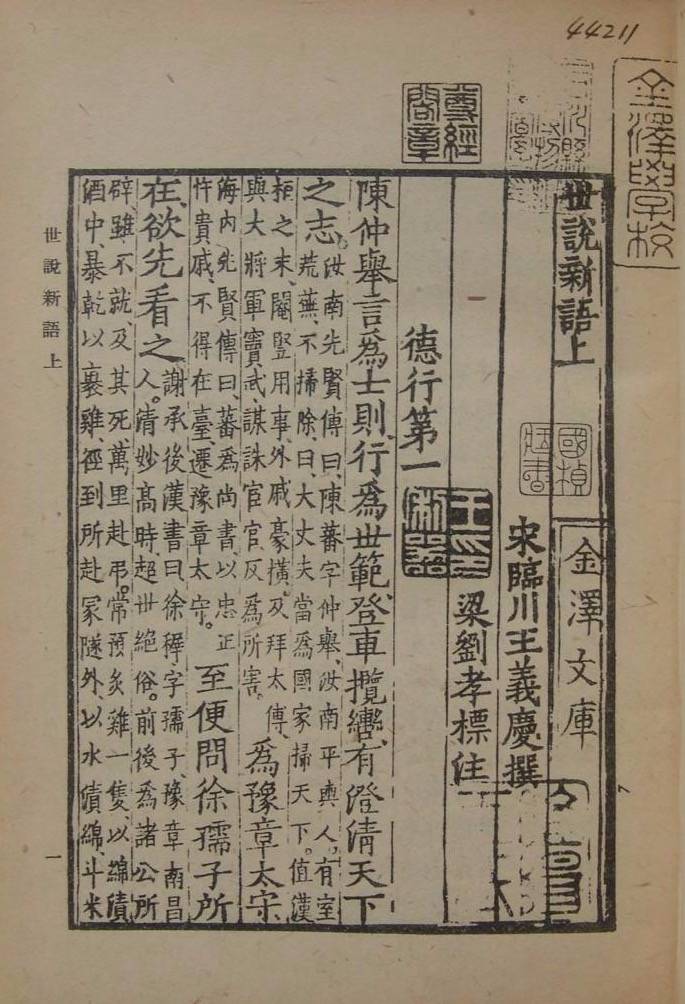 44211
金澤學校
尊經閣章
世說新語上
金澤文庫
宋臨川王義慶撰
梁劉孝標注
德行第一
陳仲舉言爲士則、行爲世範、登車攬轡、有澄清天下
之志。
汝南先賢傳曰、陳蕃字仲舉、汝南平輿人、有室
荒蕪、不掃除、曰、大丈夫當爲國家掃天下。值漢
桓之末、閹豎用事、外戚豪橫。及拜太傅、
與大將軍竇武、謀誅宦官、反爲所害。
爲豫章太守
海内先賢傳曰、蕃爲尚書、以忠正
忤貴戚、不得在臺、遷豫章太守。
至便問徐孺子所
在、欲先看之
謝承後漢書曰、徐穉字孺子、豫章南昌
人。清妙高時、超世絶俗。前後爲諸公所
辟、雖不就、及其死、萬里赴弔。常預炙雞一隻、以綿漬
酒中、暴乾以裹雞、徑到所赴冢隧外、以水漬綿、斗米
世說新語上
一